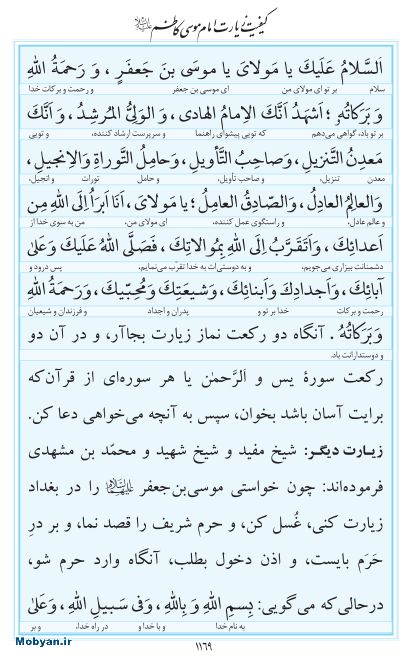 کیفیت زیارت امام موسی کاظم علیه‌السلام
اَلسَّلامُ عَلَيكَ يا مَولايَ يا موسَى بنَ جَعفَرٍ ، وَ رَحمَةُ اللهِ
سلام بر تو ای مولای من ای موسی بن جعفر و رحمت و برکات خدا
وَ بَرَكاتُهُ ؛ اَشهَدُ اَنَّكَ الاِمامُ الهادى ، وَ الوَلِىُّ المُرشِدُ ، وَ اَنَّكَ
بر تو باد، گواهی می‌دهم که تویی پیشوای راهنما و سرپرست ارشاد کننده، و تویی
مَعدِنُ التَّنزيلِ ، وَ صاحِبُ التَّأويلِ ، وَ حامِلُ التَّوراةِ وَ الاِنجيلِ ،
معدن تنزیل، و صاحب تأویل، و حامل تورات و انجیل،
وَ العالِمُ العادِلُ ، وَ الصّادِقُ العامِلُ ؛ يا مَولايَ ، اَنَا اَبرَأُ اِلَى اللهِ مِن
و عالم عادل، و راستگوی عمل کننده، ای مولای من، من به سوی خدا از
اَعدائِكَ ، وَ اَتَقَرَّبُ اِلَى اللهِ بِمُوالاتِكَ ، فَصَلَّى اللهُ عَلَيكَ وَ عَلىٰ
دشمنانت بیزاری می‌جویم، و به دوستی‌ات به خدا تقرب می‌نمایم، پس درود و
آبائِكَ ، وَ اَجدادِكَ وَ اَبنائِكَ ، وَ شيعَتِكَ وَ مُحِبّيكَ ، وَ رَحمَةُ اللهِ
رحمت و برکات خدا بر تو و پدران و اجداد و فرزندان و شیعیان
وَ بَرَكاتُهُ . آنگاه دو رکعت نماز زیارت بجاآر، و در آن دو
و دوستدارانت باد.
رکعت سورهٔ یس و اَلرَّحمٰن یا هر سوره‌ای از قرآن‌که
برایت آسان باشد بخوان، سپس به آنچه می‌خواهی دعا کن.
زیـارت دیگـر: شیخ مفید و شیخ شهید و محمّد بن مشهدی
فرموده‌اند: چون خواستی موسی‌بن‌جعفر علیهماالسلام را در بغداد
زیارت کنی، غُسل کن، و حرم شریف را قصد نما، و بر درِ
حَرَم بایست، و اذن دخول بطلب، آنگاه وارد حرم شو،
درحالی‌که می‌گویی: بِسمِ اللهِ وَ بِاللهِ ، وَ فى سَبيلِ اللهِ ، وَ عَلىٰ
به نام خدا و با خدا و در راه خدا، و بر
Mobyan.ir
۱۱۶۹